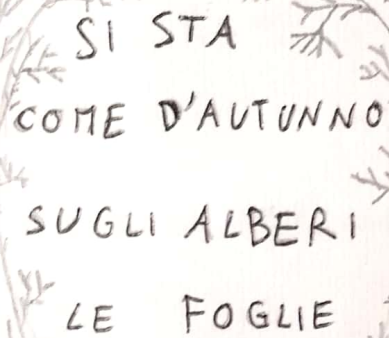 SI STA
COME D'AUTUNNO
SUGLI ALBERI
LE FOGLIE